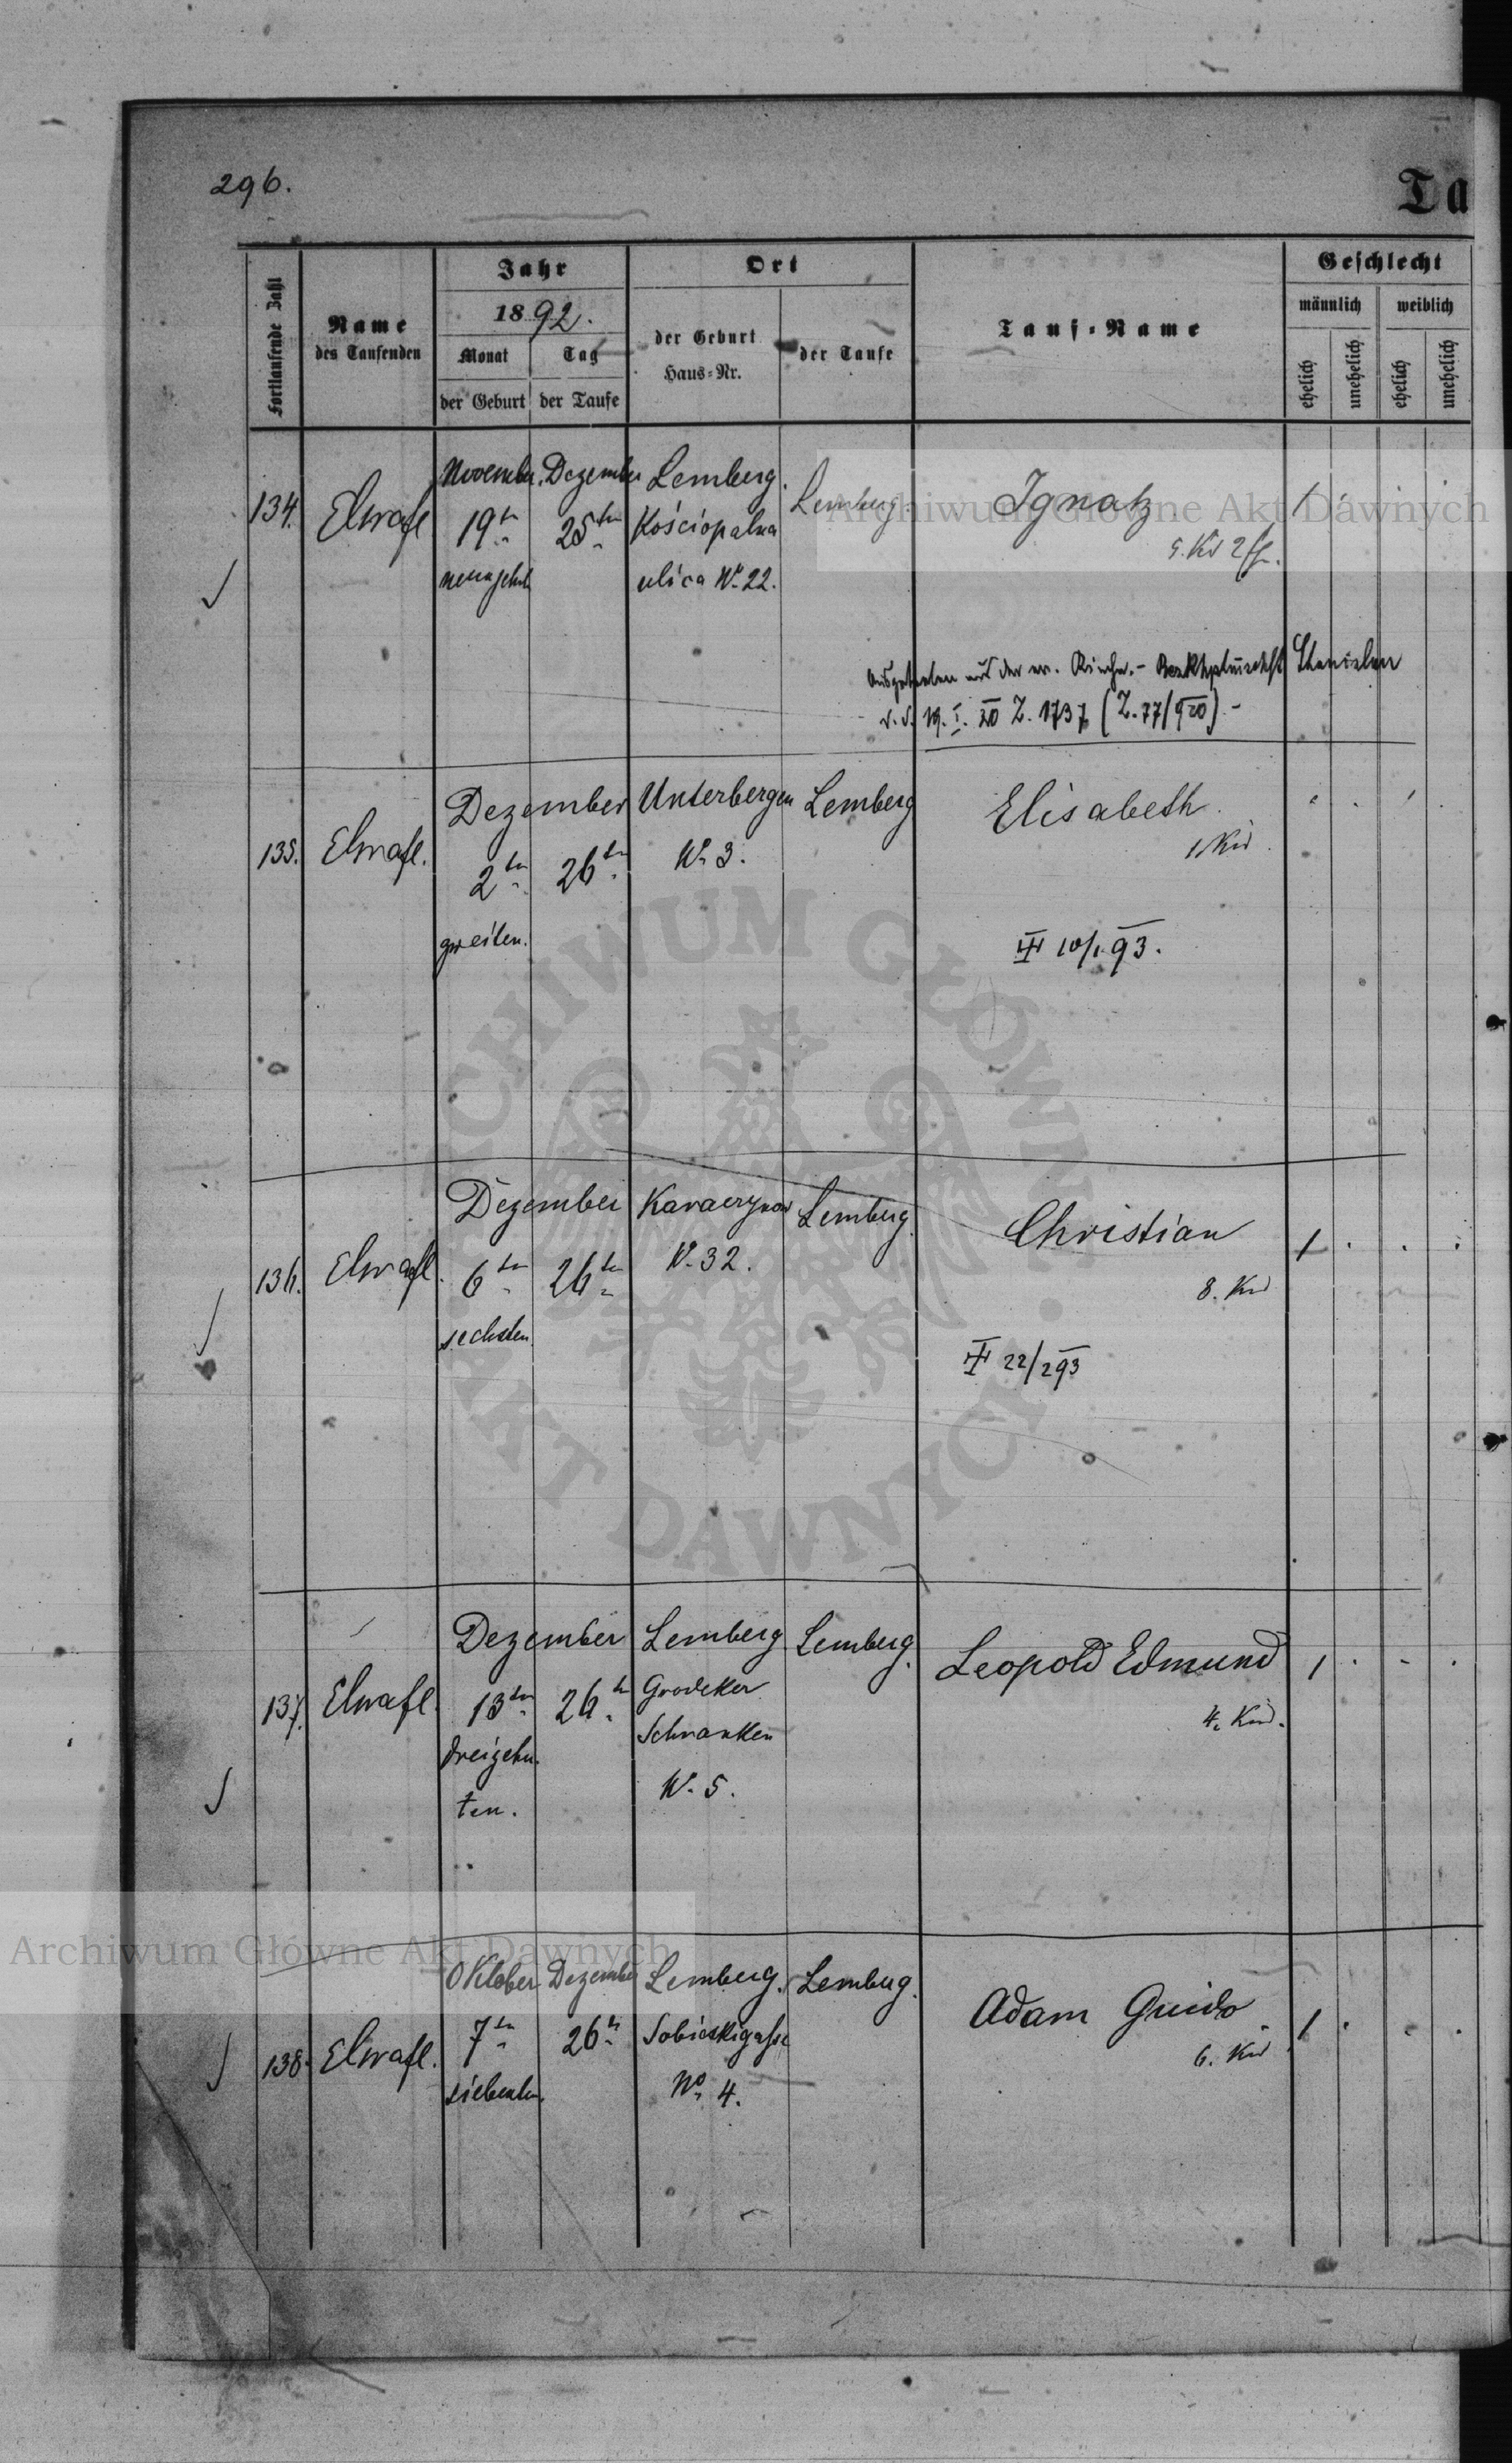 296.
Ta
Fortlaufende Zahl
Name
des Taufenden
Jahr
1892.
Monat
Tag
der Geburt
der Taufe
Ort
der Geburt
Haus-Nr.
der Taufe
Tauf-Name
Geschlecht
männlich
weiblich
ehelich
unehelich
ehelich
unehelich
134.
November. Dezember Lemberg. Lemberg. Ignatz 1
19ten 25ten Kościopalna
5. Kd
ulica No 22.
Ausgetreten aus der ev. Kirche.-
v. d. 19. I. 20 Z. 1737 (Z. 77/920).-
135.
Dezember Unterbergen Lemberg Elisabeth
2ten 26ten No 3.
1. Kd
zweiten.
10/1 93.
136.
Dezember Lemberg. Christian 1
6ten 26ten No. 32.
8. Kd
sechsten
22/2 93
137.
Dezember Lemberg Lemberg. Leopold Edmund 1
13ten 26ten Grodeker
4. Kd.
Schranken
dreizehn
ten.
No. 5.
138.
Oktober Dezember Lemberg. Lemberg. Adam Guido 1
7ten 26ten Sobieskigasse
6. Kd
siebenten.
No 4.
Archiwum Główne Akt Dawnych
Archiwum Główne Akt Dawnych
ARCHIWUM GŁÓWNE AKT DAWNYCH